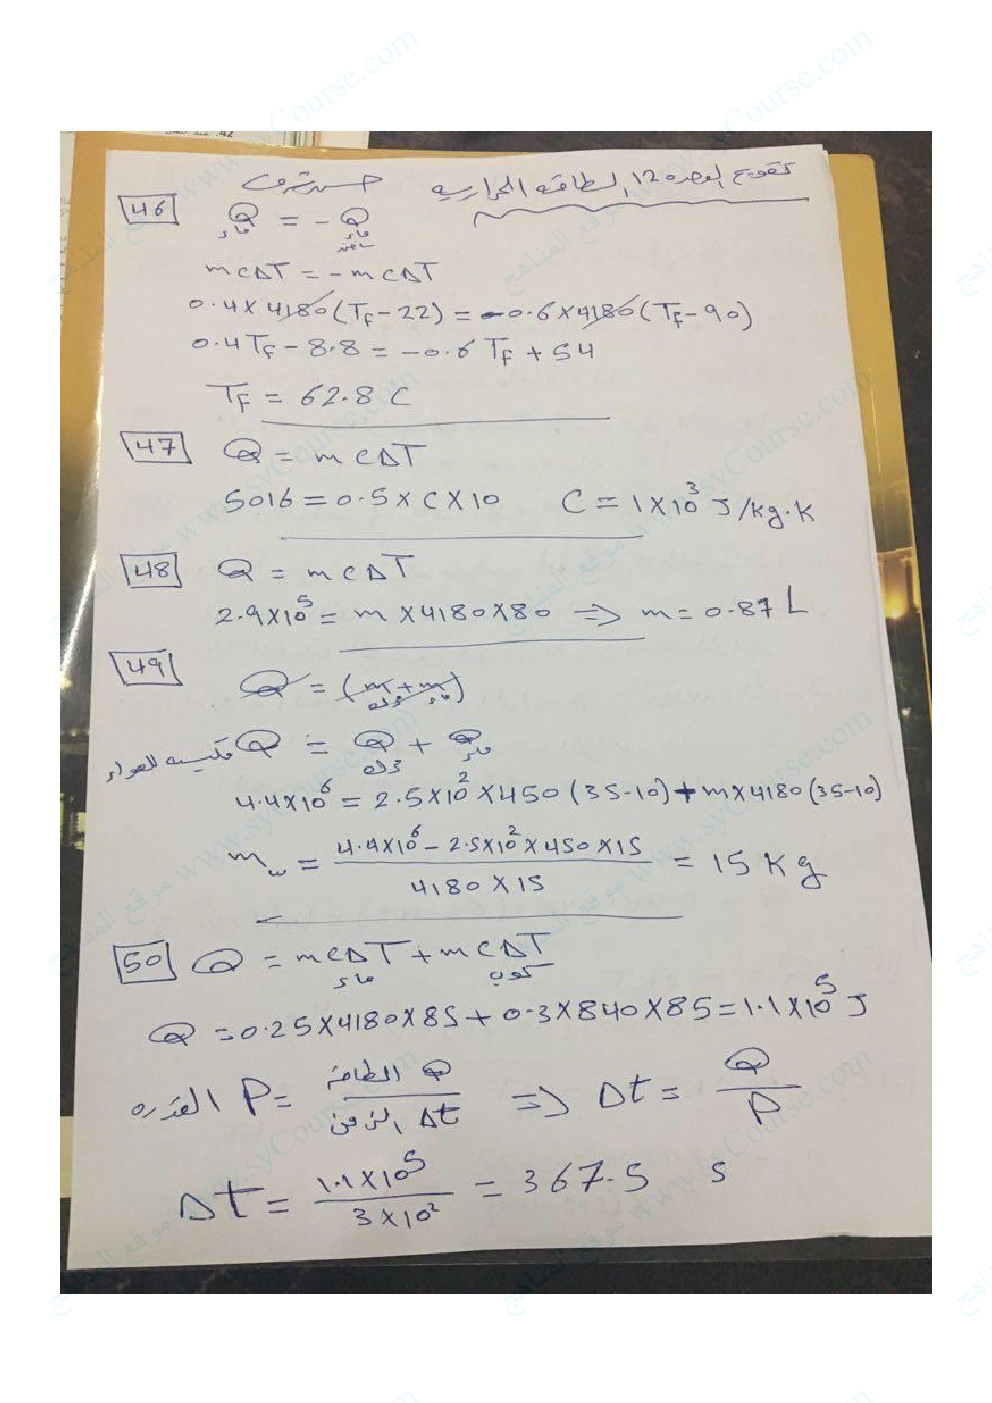 تقويم الوحدة 12 الطاقة الحرارية
46
Q = - Q
ماء ماء ساخن
mcΔT = - mcΔT
0.4 × 4180 (TF - 22) = -0.6 × 4180 (TF - 90)
0.4 TF - 8.8 = -0.6 TF + 54
TF = 62.8 C
47 Q = mcΔT
5016 = 0.5 × C × 10 C = 1 × 10³ J/kg.K
48 Q = mcΔT
2.9×10⁵ = m × 4180 × 80 ⇒ m = 0.87 L
49 Q = (m + m)
محرك ماء
مكيسه الهواء Q = Q + Q
محرك ماء
4.4×10⁶ = 2.5×10² × 450 (35-10) + m×4180 (35-10)
mw = 4.4×10⁶ - 2.5×10² × 450 × 15 / 4180 × 15 = 15 kg
50 Q = mcΔT + mcΔT
ماء كوب
Q = 0.25×4180×85 + 0.3×840×85 = 1.1×10⁵ J
القدره P = الطاقة Q / الزمن Δt ⇒ Δt = Q / P
Δt = 1.1×10⁵ / 3×10² = 367.5 s
موقع المناهج www.syCourse.com